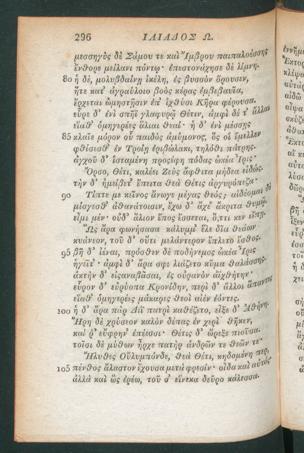 296 ΙΛΙΑΔΟΣ Ω.
μεσσηγὺς δὲ Σάμου τε καὶ Ἴμβρου παιπαλοέσσης
ἔνθορε μείλανι πόντῳ· ἐπεστονάχησε δὲ λίμνη.
80 ἡ δὲ, μολυβδαίνῃ ἰκέλη, ἐς βυσσὸν ὄρουσεν,
ἥτε κατ' ἀγραύλοιο βοὸς κέρας ἐμβεβαυῖα,
ἔρχεται ὠμηστῇσιν ἐπ' ἰχθύσι Κῆρα φέρουσα.
εὗρε δ' ἐνὶ σπῆϊ γλαφυρῷ Θέτιν, ἀμφὶ δέ τ' ἄλλαι
εἵαθ' ὁμηγερέες ἅλιαι θεαί· ἡ δ' ἐνὶ μέσσῃς
85 κλαῖε μόρον οὗ παιδὸς ἀμύμονος, ὅς οἱ ἔμελλεν
φθίσεσθ' ἐν Τροίῃ ἐριβώλακι, τηλόθι πάτρης.
ἀγχοῦ δ' ἱσταμένη προσέφη πόδας ὠκέα Ἶρις·
Ὄρσο, Θέτι, καλέει Ζεὺς ἄφθιτα μήδεα εἰδώς.
τὴν δ' ἠμείβετ' ἔπειτα θεὰ Θέτις ἀργυρόπεζα·
90 Τίπτε με κεῖνος ἄνωγε μέγας θεός; αἰδέομαι δὲ
μίσγεσθ' ἀθανάτοισιν, ἔχω δ' ἄχε' ἄκριτα θυμῷ.
εἶμι μέν· οὐδ' ἅλιον ἔπος ἔσσεται, ὅ,ττι κεν εἴπῃ.
Ὣς ἄρα φωνήσασα κάλυμμ' ἕλε δῖα θεάων
κυάνεον, τοῦ δ' οὔτι μελάντερον ἔπλετο ἔσθος.
95 βῆ δ' ἰέναι, πρόσθεν δὲ ποδήνεμος ὠκέα Ἶρις
ἡγεῖτ'· ἀμφὶ δ' ἄρα σφι λιάζετο κῦμα θαλάσσης.
ἀκτὴν δ' εἰσαναβᾶσαι, ἐς οὐρανὸν ἀϊχθήτην·
εὗρον δ' εὐρύοπα Κρονίδην, περὶ δ' ἄλλοι ἅπαντες
εἵαθ' ὁμηγερέες μάκαρες θεοὶ αἰὲν ἐόντες.
100 ἡ δ' ἄρα πὰρ Διῒ πατρὶ καθέζετο, εἶξε δ' Ἀθήνη.
Ἥρη δὲ χρύσεον καλὸν δέπας ἐν χερὶ θῆκεν,
καί ῥ' εὔφρην' ἐπέεσσι· Θέτις δ' ὤρεξε πιοῦσα.
τοῖσι δὲ μύθων ἦρχε πατὴρ ἀνδρῶν τε θεῶν τε·
Ἤλυθες Οὔλυμπόνδε, θεὰ Θέτι, κηδομένη περ,
105 πένθος ἄλαστον ἔχουσα μετὰ φρεσίν· οἶδα καὶ αὐτός·
ἀλλὰ καὶ ὣς ἐρέω, τοῦ σ' εἵνεκα δεῦρο κάλεσσα.